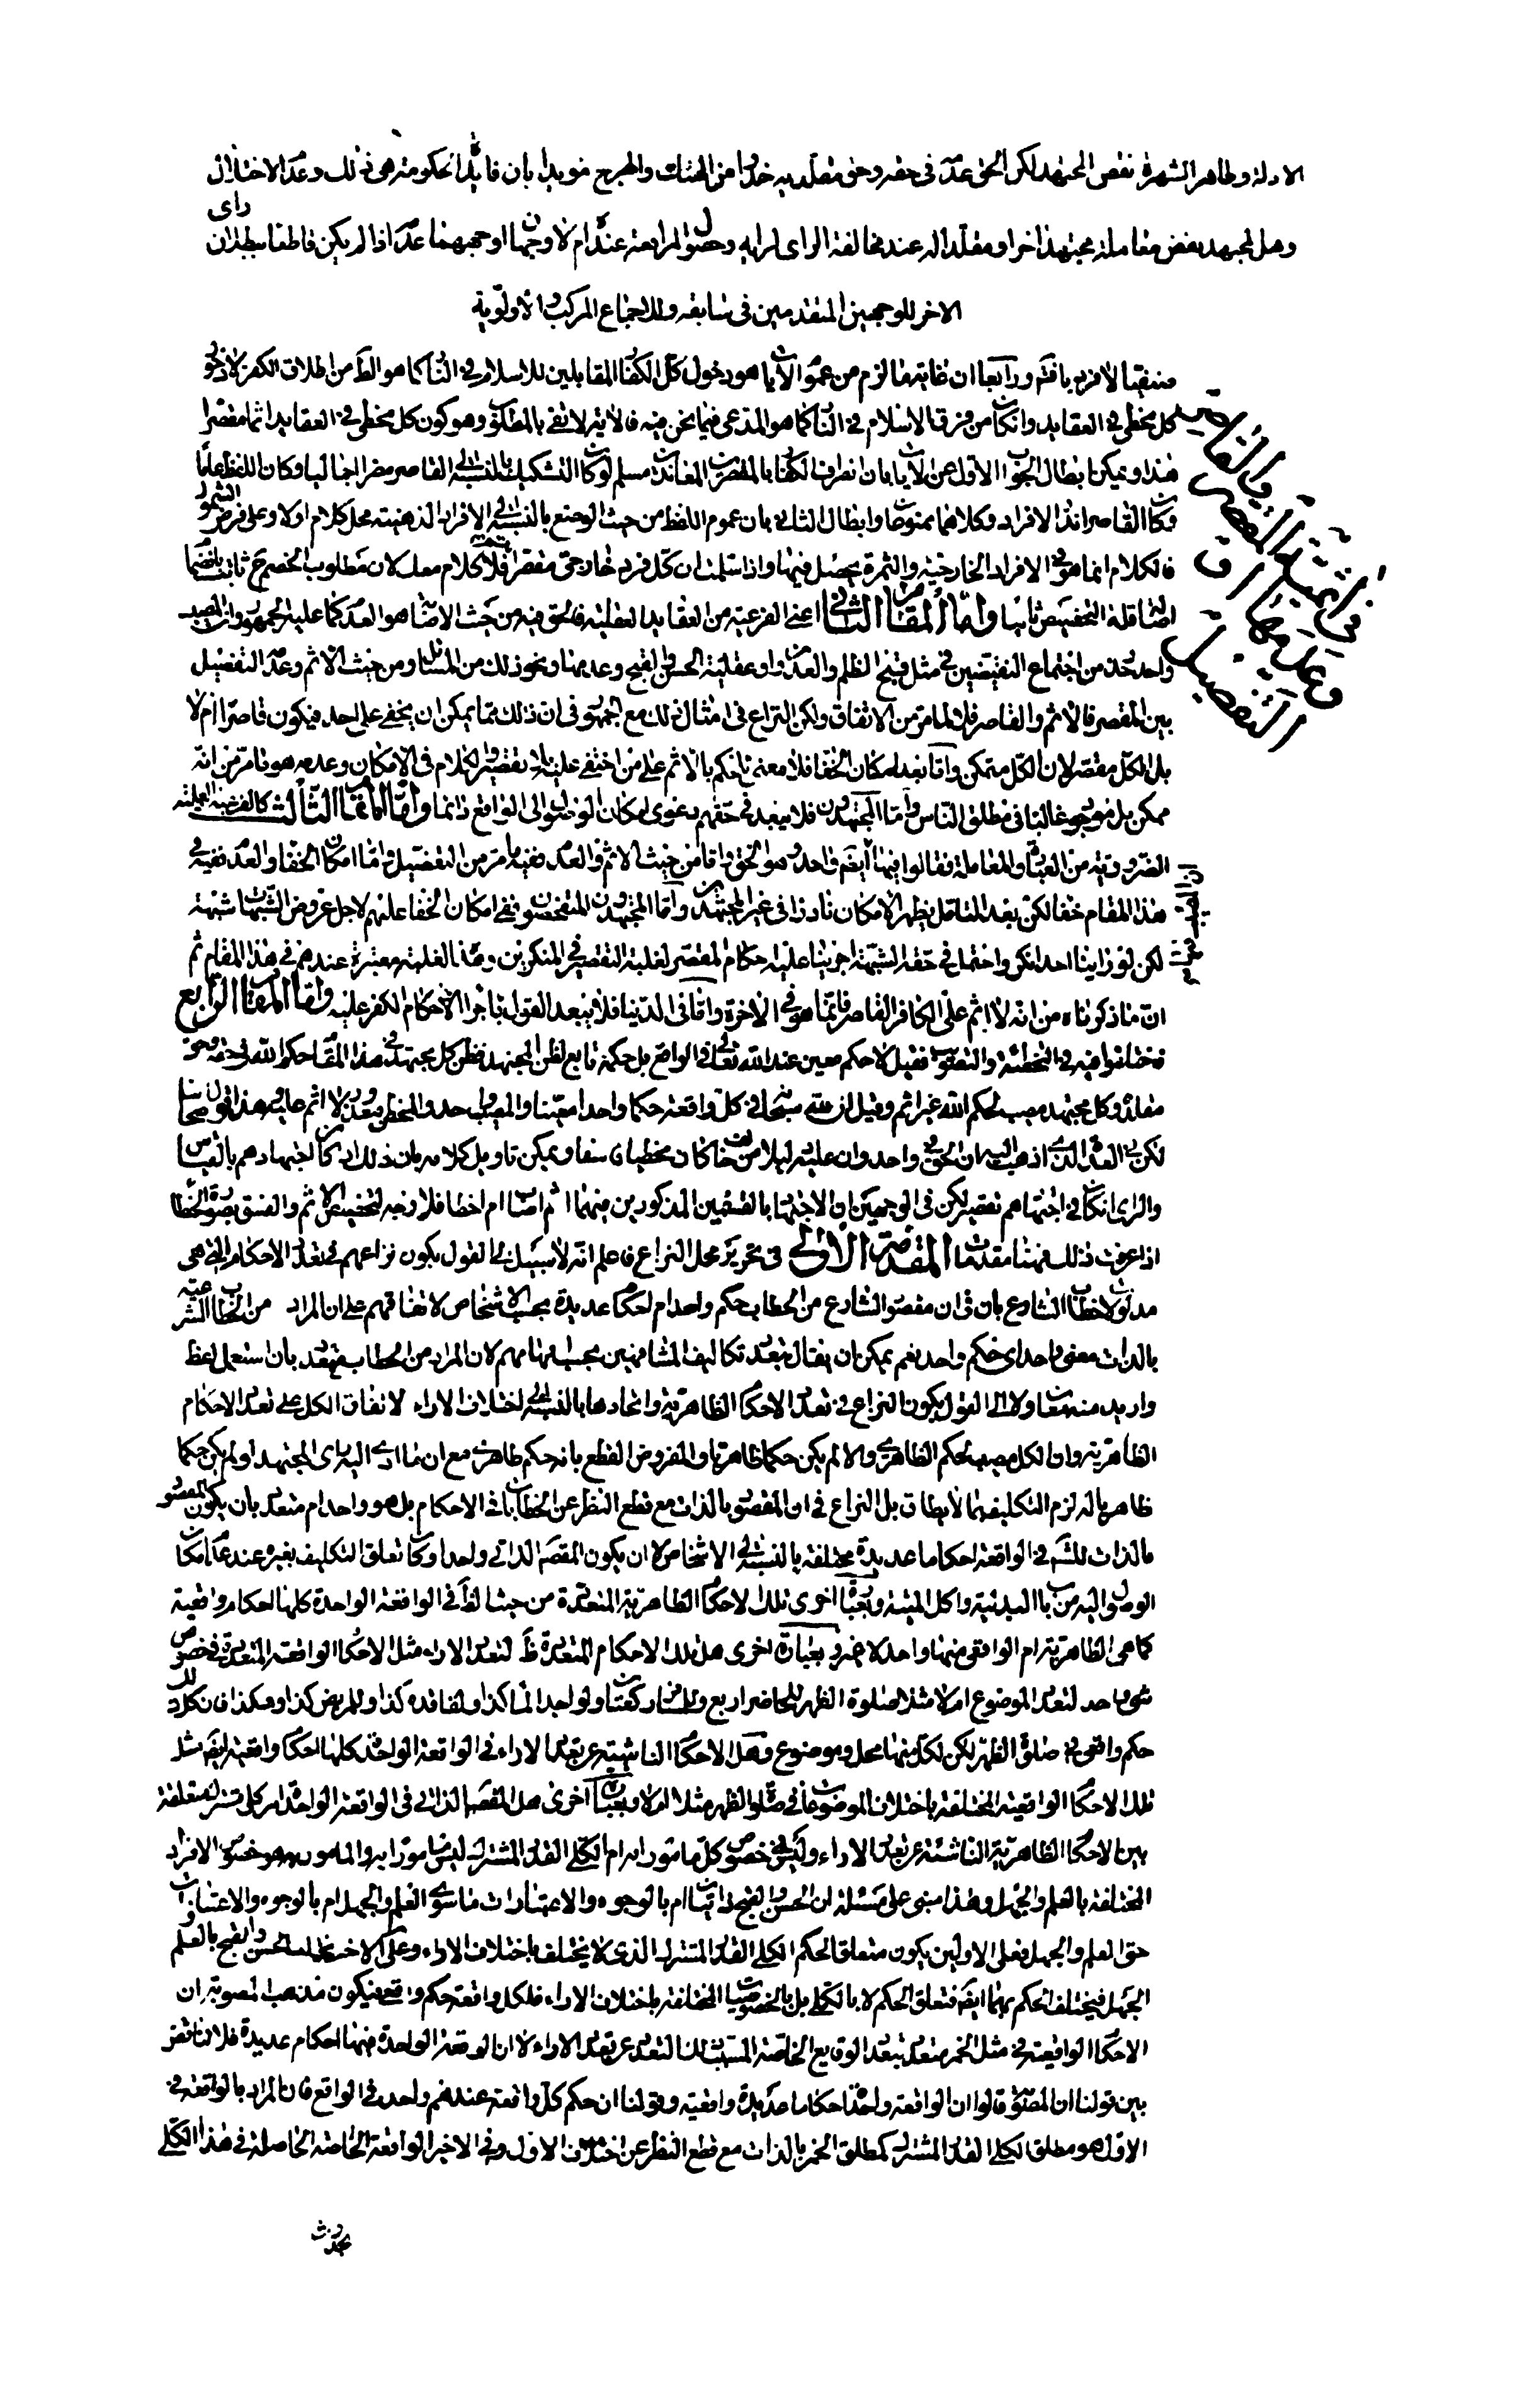 الادلة وظاهر الشهرة نقض المجتهد لكن الحق عدمه فى حقه وحق مقلديه من الهتات والهرج مويدا بان فايدة الحكومة هى ذلك وعدم الاختلال
وهل لمجتهد نقض معاملة مجتهد اخر او مقلد له عند مخالفة الراى لرايه وحصول المرافعة عنده ام لا وجهان اوجههما عدمه اذا لم يكن قاطعا ببطلان راى
الاخر للوجهين المتقدمين فى سابقه وللاجماع المركب والاولوية
ورابعا ان غاية ما لزم من عموم الايات هو دخول كل الكفار المقابلين للاسلام فى النار كما هو الظ من اطلاق الكفر لا دخول
كل مخطى فى العقايد وان كان من فرق الاسلام فى النار كما هو المدعى فيما نحن فيه فالاية لا تفى بالمطلوب وهو كون كل مخطى فى العقايد اثما مقصرا
هذا ويمكن ابطال الجواب الاول عن الايات بان انصراف الكفار بالمقصرين المعاندين مسلم لو كان التشكيك بالنسبة الى القاصر مضرا اجماليا وكان اللفظ عاما
وكان القاصر اندر الافراد وكلاهما ممنوعان وابطال الثانى بان عموم اللفظ من حيث الوضع بالنسبة الى الافراد الذهنية محل كلام اولا وعلى فرض الشمول
فالكلام انما هو فى الافراد الخارجية والثمرة يحصل فيها واذا سلمت ان كل فرد خارجى مقصر فلا كلام معك لان مطلوب الخصم ح ثابت بانضمام
اصالة قلة التخصيص ثانيا واما المقام الثانى اعنى الفرعية من العقايد العقلية فالحق فيه من حيث الاصابة هو العدم كما عليه الجمهور وان المصيب
واحد حذرا من اجتماع النقيضين فى مثل قبح الظلم والعدوان وعقلية الحسن والقبح وعدمها ونحو ذلك من المسائل ومن حيث الاثم وعدمه التفصيل
بين المقصر فالاثم والقاصر فلا لما مر من الاتفاق ولكن النزاع فى امثال ذلك مع الجمهور فى ان ذلك مما يمكن ان يخفى على احد فيكون قاصرا ام لا
بل الكل مقصر لان الكل متمكن واما بعد امكان الخفا فلا معنى للحكم بالاثم على من اختفى عليه بلا تقصير والكلام فى الامكان وعدمه هو ما مر من انه
ممكن بل موجود غالبا فى مطلق الناس واما المجتهدون فلا يبعد فى حقهم دعوى امكان الوصول الى الواقع دائما واما المقام الثالث كالفرعية العملية
الضرورية من العبادة والمعاملة فقالوا فيها ايضم واحد وهو الحق واما من حيث الاثم والعدم ففيه ما مر من التفصيل واما امكان الخفا والعدم ففيه فى
هذا المقام خفا لكن بعد التامل يظهر الامكان نادرا فى غير المجتهدين واما المجتهدون المتفحصون ففى امكان الخفا عليهم لاجل عروض الشبهات شبهة
لكن لو راينا احدا نكر واحتمل فى حقه الشبهة اجرينا عليه احكام المقصر لغلبة التقصير فى المنكرين وهذه الغلبة معتبرة عندهم فى هذا المقام ثم
ان ما ذكرناه من انه لا اثم على الكافر القاصر فانما هو فى الاخرة واما فى الدنيا فلا يبعد القول باجراء الاحكام الكفر عليه واما المقام الرابع
فاختلفوا فيه فى التخطئة والتصويب فقيل لا حكم معين عند الله تعالى فى الواقع بل حكمه تابع لظن المجتهد فظن كل مجتهد فى هذا المقام حكم الله فى حقه وحق
مقلده وكل مجتهد مصيب لحكم الله غير اثم وقيل ان لله سبحانه فى كل واقعة حكما واحدا معينا والمصيب واحد والمخطى معذور لا اثم عليه
والراى ان كان فى اجتهادهم تقصير لكن فى الوجهين ان الاجتهاد بالقسمين المذكورين منهما اثم اصاب ام اخطا فلا وجه لتخصيص الاثم والفسق بصورة الخطا
اذا عرفت ذلك فهنا مقدمات المقدمة الاولى فى تحرير محل النزاع فاعلم انه لا سبيل الى القول بكون نزاعهم فى تعدد الاحكام التى هى
مدلول لاخطاب الشارع بان فى ان مقصود الشارع من الخطاب حكم واحد ام احكام عديدة بحسب الاشخاص لاتفاقهم على ان المراد من الخطاب الشرعية
بالذات معنى واحد اى حكم واحد نعم يمكن ان يقال بتعدد تكاليف المشافهين بحسب افهامهم لان المراد من الخطاب متعدد بان استعمل لفظ
واريد منه معان ولا الى القول بكون النزاع فى تعدد الاحكام الظاهرية واتحادها بالنسبة الى اختلاف الاراء لاتفاق الكل على تعدد الاحكام
الظاهرية وان الكل مصيب لحكم الظاهرى والا لم يكن حكما ظاهريا والمفروض القطع بانه حكم ظاهرى مع ان ما ادى اليه راى المجتهد لو لم يكن حكما
ظاهريا له لزم التكليف بما لا يطاق بل النزاع فى ان المقصود بالذات مع قطع النظر عن الخطابات فى الاحكام بل هو واحد ام متعدد بان يكون المقصود
بالذات للشم فى الواقعة احكاما عديدة مختلفة بالنسبة الى الاشخاص لا ان يكون المقصم الذاتى واحدا وكان تعلق التكليف بغيره عند عدم امكان
الوصول اليه من باب البدلية واكل الميتة وبعبارة اخرى تلك الاحكام الظاهرية المتعددة من حيث الظ فى الواقعة الواحدة كلها احكام واقعية
كما هى الظاهرية ام الواقعى منها واحد لا غير وبعبارة اخرى هل تلك الاحكام المتعددة ظ لتعدد الاراء مثل الاحكام الواقعة المتعددة فى خصوص
شى واحد لتعدد الموضوع ام لا مثلا صلوة الظهر للحاضر اربع وللمسافر ركعتان ولواجد الماء كذا ولفاقده كذا وللمريض كذا وهكذا فان لكل
حكم واقعى فى صلوة الظهر لكن لكل منها محل وموضوع وهل الاحكام الناشية عن تعدد الاراء فى الواقعة الواحدة كلها احكام واقعية ايضم مثل
تلك الاحكام الواقعية المختلفة باختلاف الموضوعات فى صلوة الظهر مثلا ام لا وبعبارة اخرى هل المقصم الذاتى فى الواقعة الواحدة امر كلى مشترك متعلقة
بين الاحكام الظاهرية الناشئة عن تعدد الاراء وليس فى خصوص كل مامورا به ام الكلى القدر المشترك ليس مامورا به والمامور به هو خصوص الافراد
المختلفة بالعلم والجهل وهذا مبنى على مسئلة ان الحسن والقبح ذاتيان ام بالوجوه والاعتبارات ما سوى العلم والجهل ام بالوجوه والاعتبارات
حتى العلم والجهل فعلى الاولين يكون متعلق الحكم الكلى القدر المشترك الذى لا يختلف باختلاف الاراء وعلى الاخير يختلف الحسن والقبح بالعلم
الجهل فيختلف الحكم بهما ايضم فتعلق الحكم لا بالكلى بل بالخصوصيات المختلفة باختلاف الاراء فلكل واقعة حكم واقعى فيكون مذهب المصوبة ان
الاحكام الواقعية فى مثل الخمر متعدد بتعدد الوقايع الخاصة المسبب ذلك التعدد عن تعدد الاراء لا ان الوقعة الواحدة فيها احكام عديدة فلا تناقض
بين قولنا ان المصوبة قالوا ان الواقعة واحدة احكاما عديدة واقعية وقولنا ان حكم كل واقعة عندهم واحد فى الواقع فان المراد بالواقعة فى
الاول هو مطلق الكلى القدر المشترك كمطلق الخمر بالذات مع قطع النظر عن اختلاف الاول وفى الاخير الواقعة الخاصة الحاصلة فى هذا الكلى